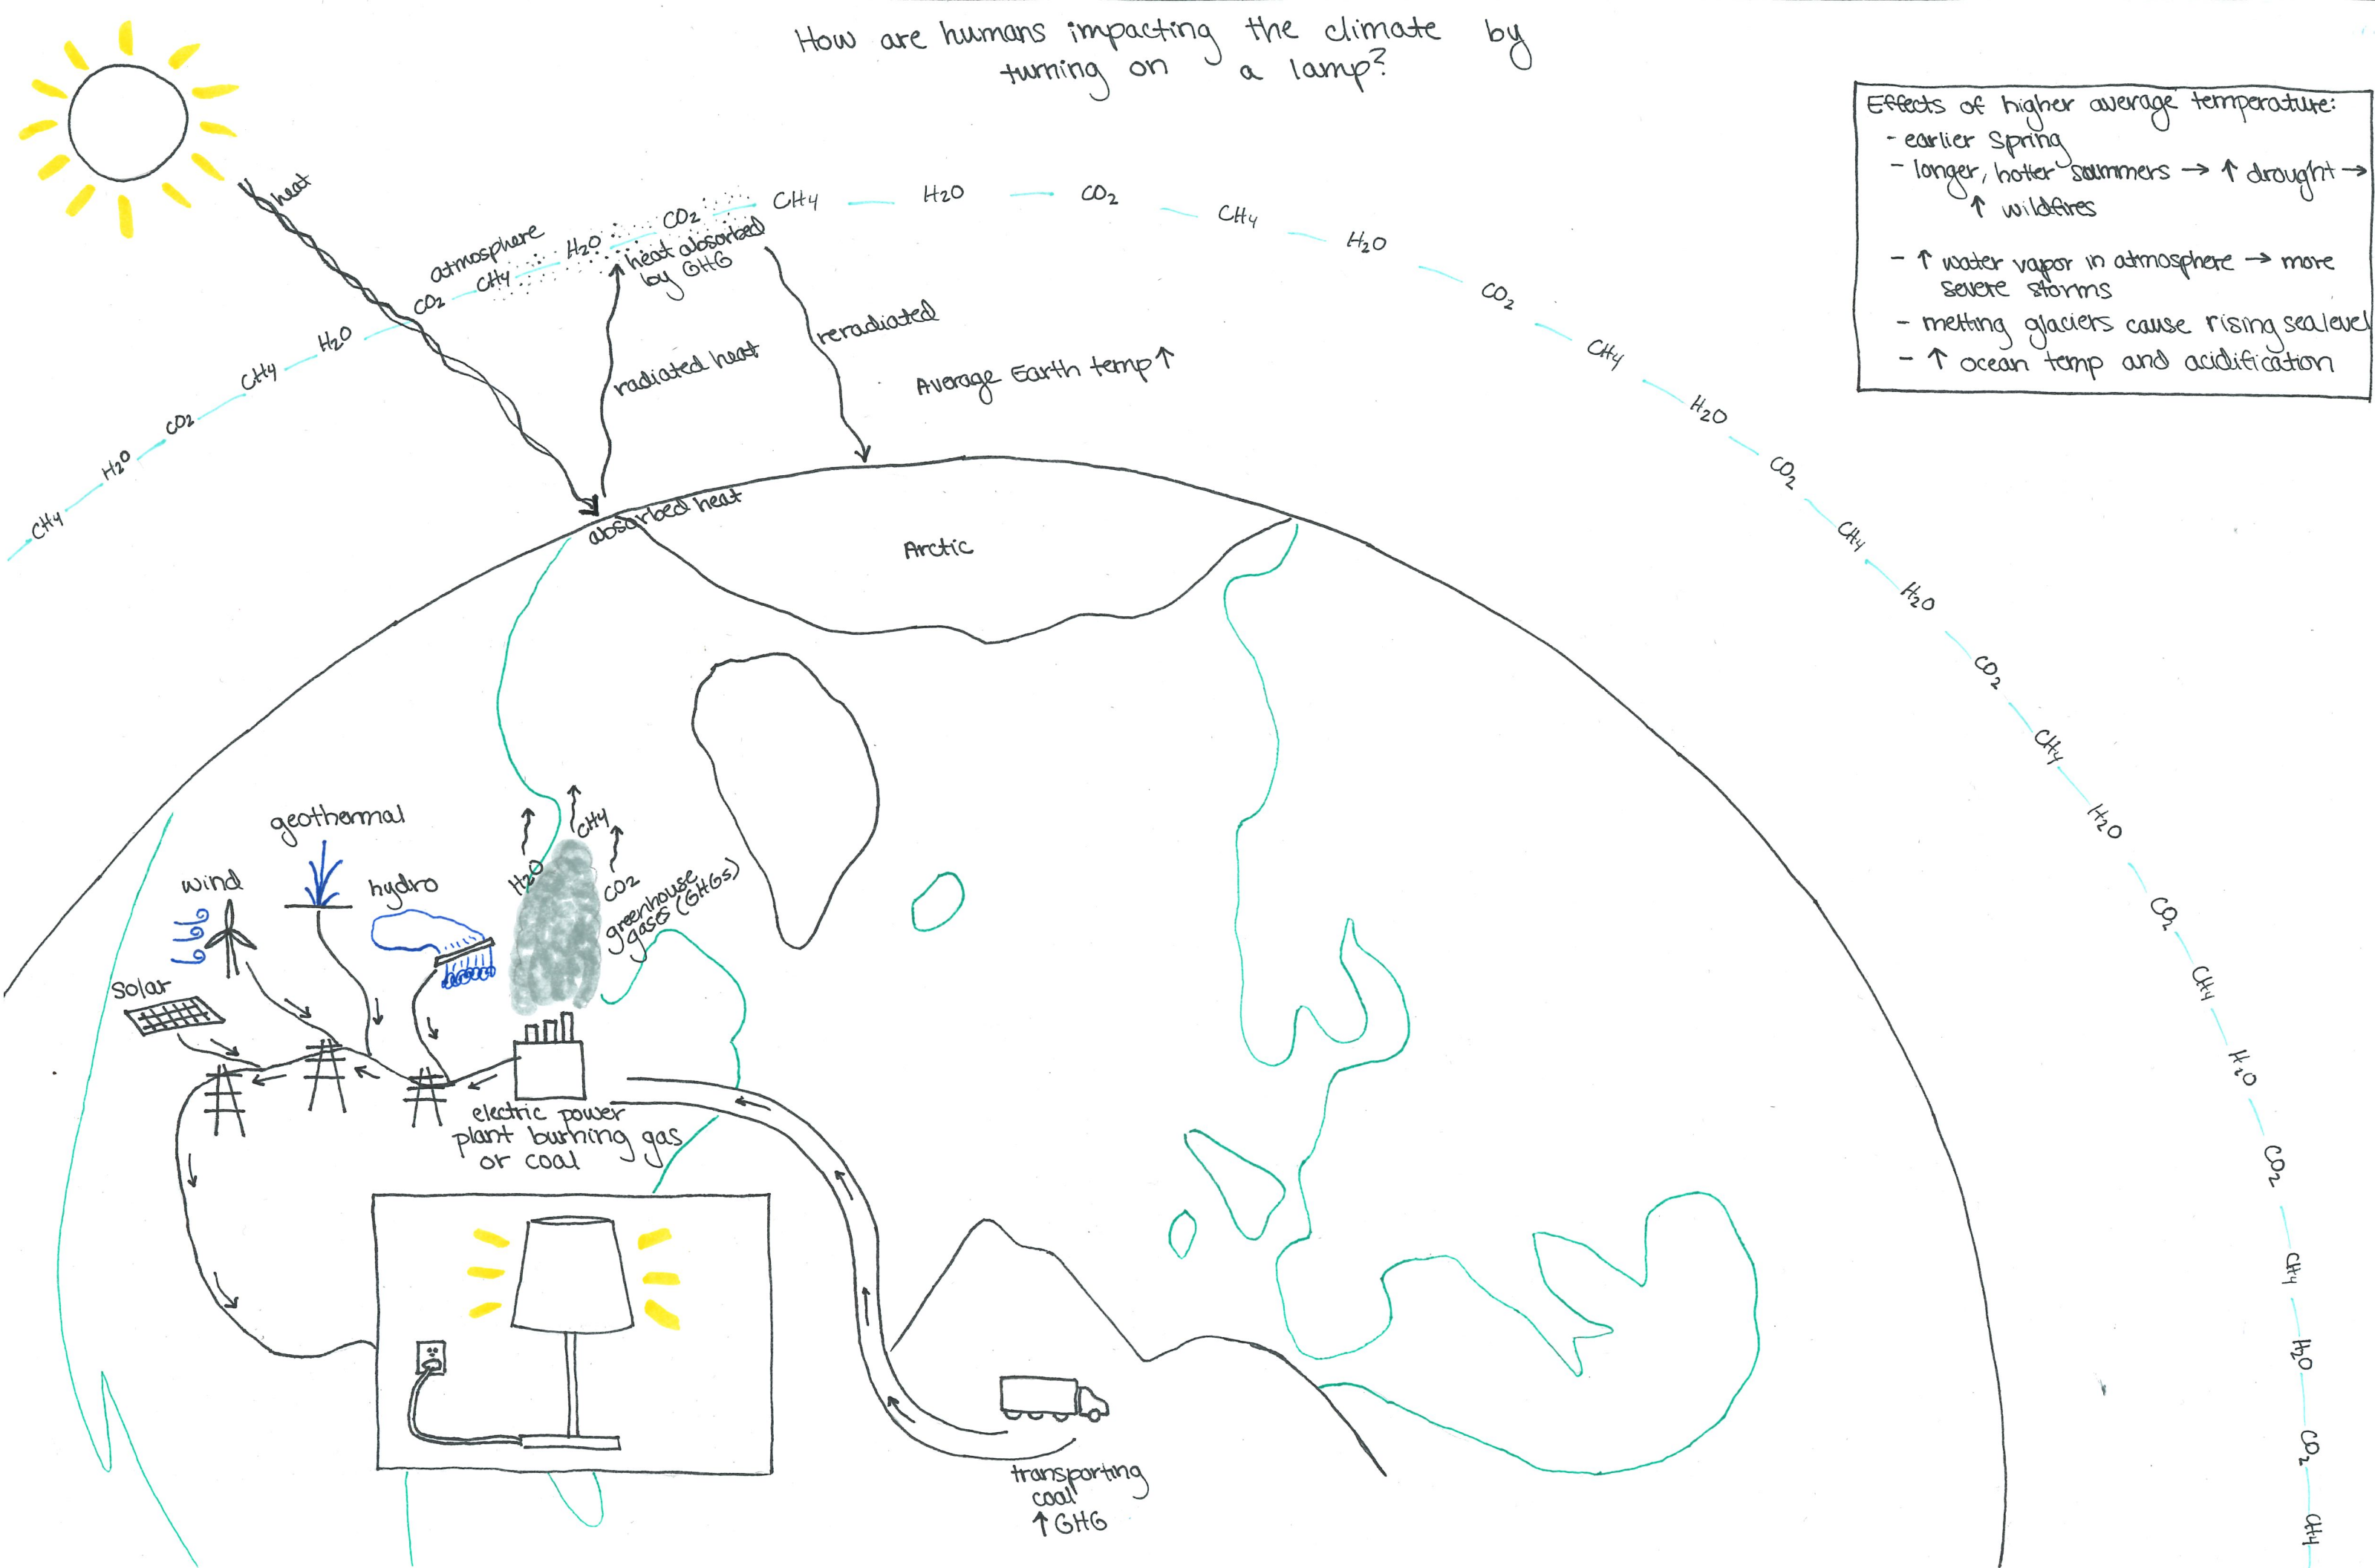 How are humans impacting the climate by
turning on a lamp?
Effects of higher average temperature:
- earlier Spring
- longer, hotter summers → ↑ drought →
↑ wildfires
- ↑ water vapor in atmosphere → more
severe storms
- melting glaciers cause rising sea level
- ↑ ocean temp and acidification
heat
atmosphere
CH4
H2O
CO2
CH4
H2O
CO2
CH4
H2O
CO2
CH4
H2O
CO2
CH4
H2O
CO2
CH4
H2O
CO2
CH4
H2O
CO2
CH4
H2O
CO2
CH4
H2O
CO2
CH4
H2O
CO2
CH4
heat absorbed
by GHG
radiated heat
reradiated
Average Earth temp ↑
absorbed heat
Arctic
geothermal
wind
hydro
solar
H2O
CH4
CO2
greenhouse
gases (GHGs)
electric power
plant burning gas
or coal
transporting
coal
↑ GHG